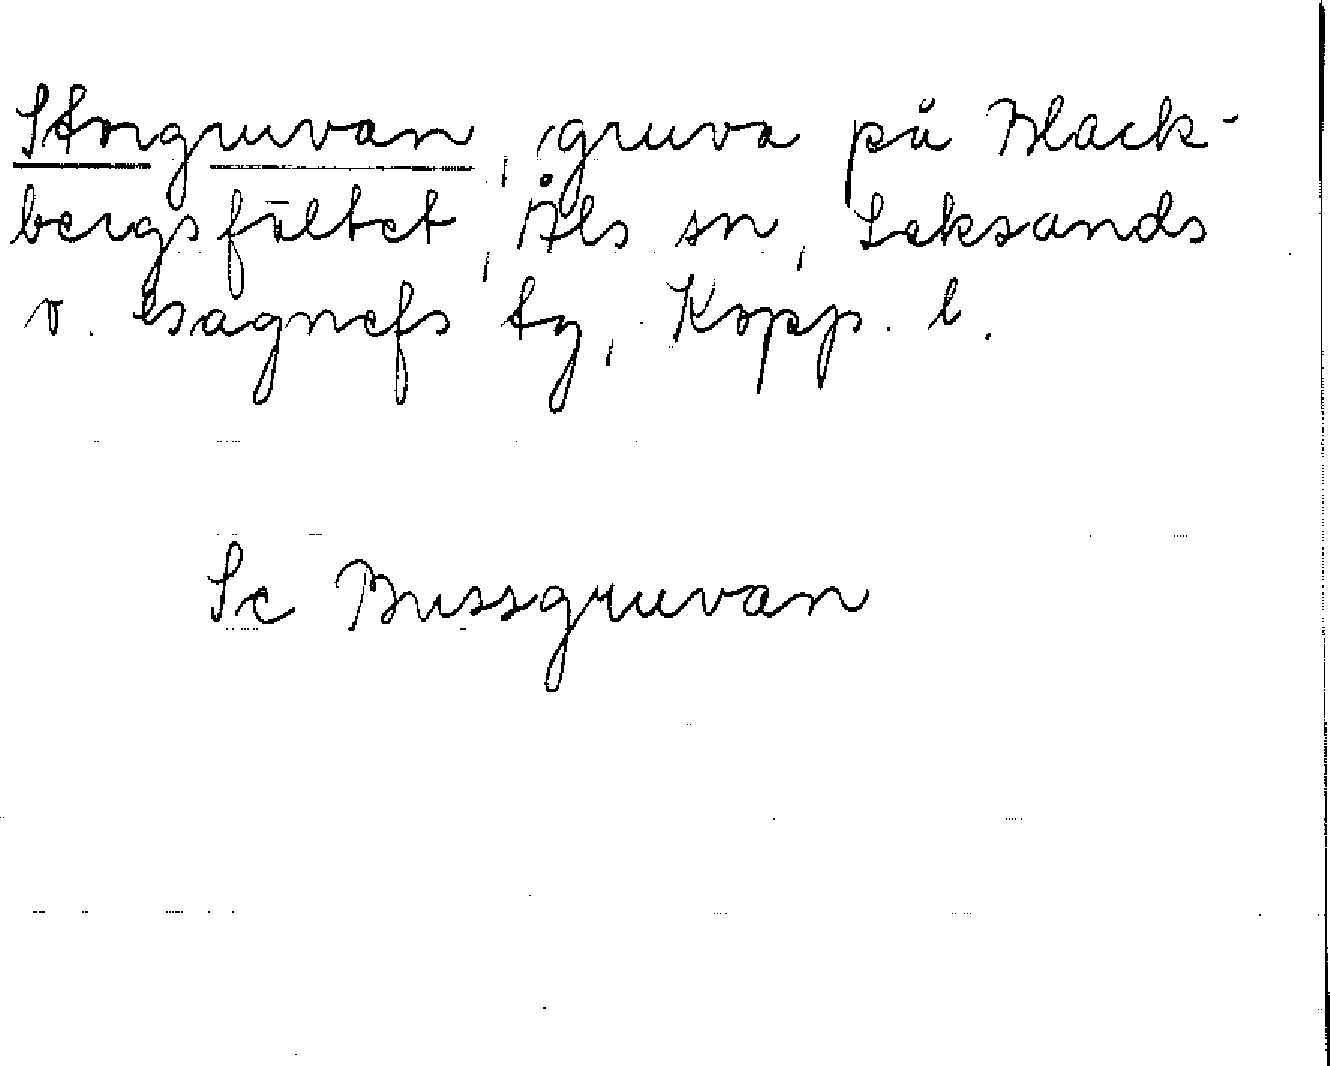 Storgruvan, gruva på Black-
bergsfältet, Åls sn, Leksands
o. Gagnefs tg, Kopp. l.
Se Bussgruvan